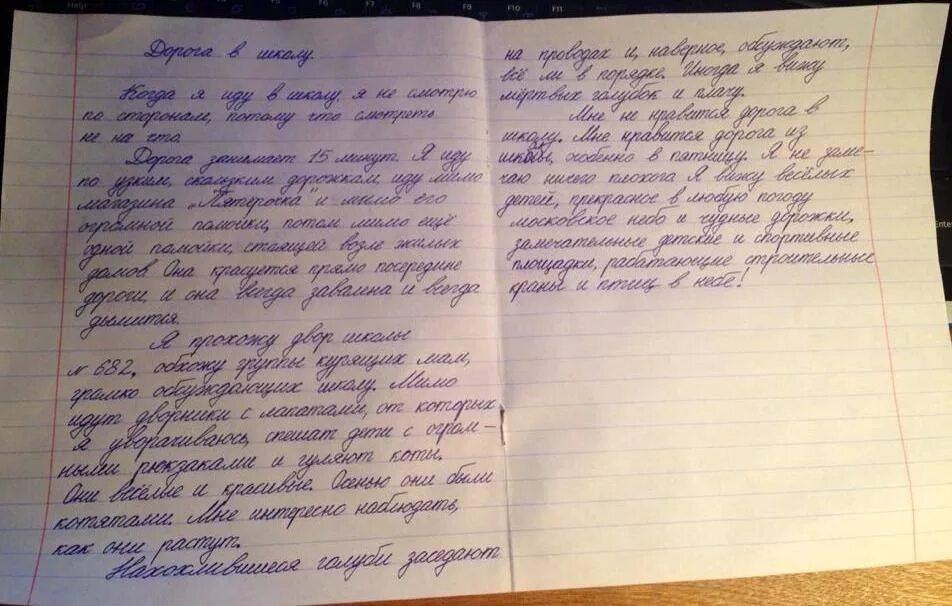 Дорога в школу.
Когда я иду в школу, я не смотрю
по сторонам, потому что смотреть
не на что.
Дорога занимает 15 минут. Я иду
по узким, скользким дорожкам, иду мимо
магазина „Пятёрочка" и мимо его
огромной помойки, потом мимо ещё
одной помойки, стоящей возле жилых
домов. Она красуется прямо посередине
дороги, и она всегда завалена и всегда
дымится.
Я прохожу двор школы
№ 682, обхожу группы курящих мам,
громко обсуждающих школу. Мимо
идут дворники с лопатами, от которых
я уворачиваюсь, спешат дети с огром-
ными рюкзаками и гуляют коты.
Они весёлые и красивые. Осенью они были
котятами. Мне интересно наблюдать,
как они растут.
Нахохлившиеся голуби заседают
на проводах и, наверное, обсуждают,
всё ли в порядке. Иногда я вижу
мёртвых голубок и плачу.
Мне не нравится дорога в
школу. Мне нравится дорога из
школы, особенно в пятницу. Я не заме-
чаю ничего плохога Я вижу весёлых
детей, прекрасное в любую погоду
московское небо и чудные дорожки,
замечательные детские и спортивные
площадки, работающие строительные
краны и птиц в небе!
F6
F7
F8
F9
F10
F11